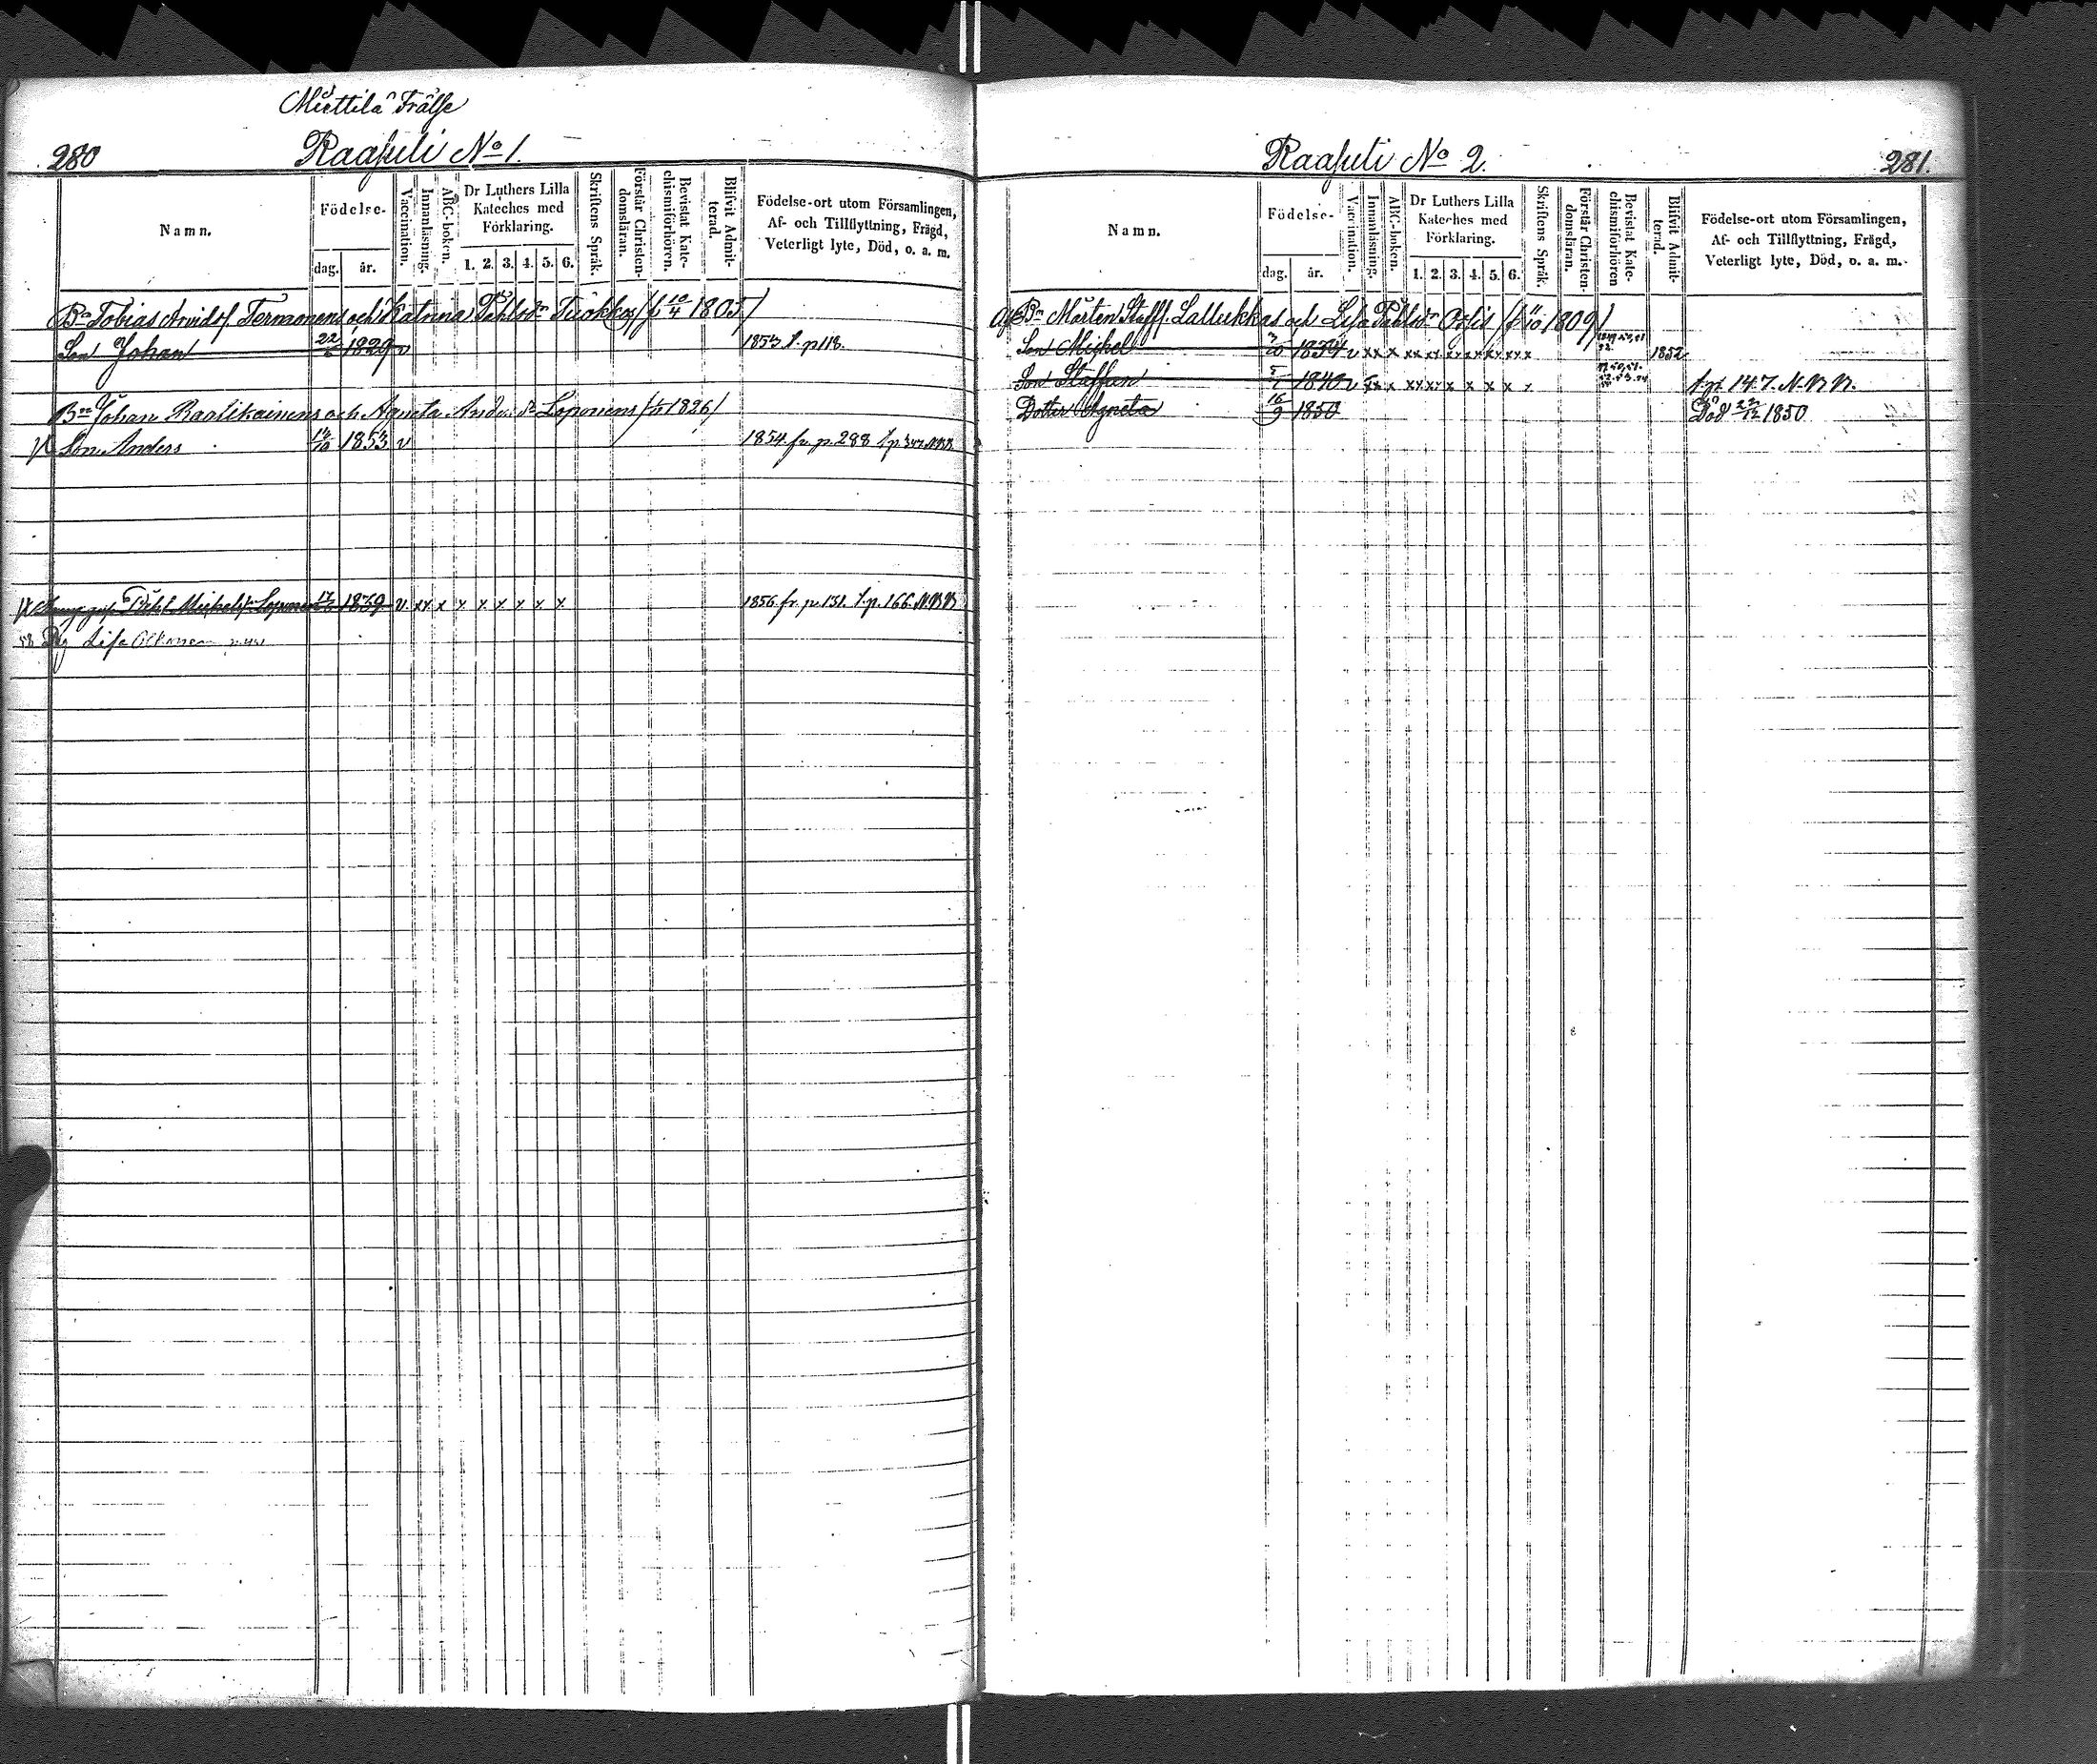 Muttila Frälse
280 Raasuli No 1.
Namn. Födelse- dag. år. Vaccination. Innanläsning. ABC-boken. Dr Luthers Lilla Kateches med Förklaring. 1. 2. 3. 4. 5. 6. Skriftens Språk. Förstår Christendomsläran. Bevistat Katechismiförhören. Blifvit Admitterad. Födelse-ort utom Församlingen, Af- och Tillflyttning, Frägd, Veterligt lyte, Död, o. a. m.
Bn Tobias Arvidss. Termonens och Katrina Påhlsdr Tuokkos /f. 10/4 1805/
Son Johan 22 1829 v 1853 t. p 118.
Bn Johan Raatikainens och Agneta Andr. dr Loponens 1826/
Son Anders 14/10 1853 v 1854 fr. p. 288 t p N.B.B.
Påhl Mickelss. Loponen 17 1839 v. xx x x x x x x x 1856 fr. p. 131. t. p. 166. N.B.B.
58 Pig Lisa
Raasuli No 2. 281.
Namn. Födelse- dag. år. Vaccination. Innanläsning. ABC-boken. Dr Luthers Lilla Kateches med Förklaring. 1. 2. 3. 4. 5. 6. Skriftens Språk. Förstår Christendomsläran. Bevistat Katechismiförhören Blifvit Admitterad. Födelse-ort utom Församlingen, Af- och Tillflyttning, Frägd, Veterligt lyte, Död, o. a. m.
Bn Mårten Staff. Lallukkas och Lisa Påhlsdr Orfit /f. 11/10 1809/
Son Mickel 7/10 1834 v xx x xx xx xx xx xx xx x 1852
Son Staffan 5 1840 v xx x xx xx x x x x x t. p. 147. N.B.B.
Dotter Agneta 16/9 1850 Död 22/12 1850